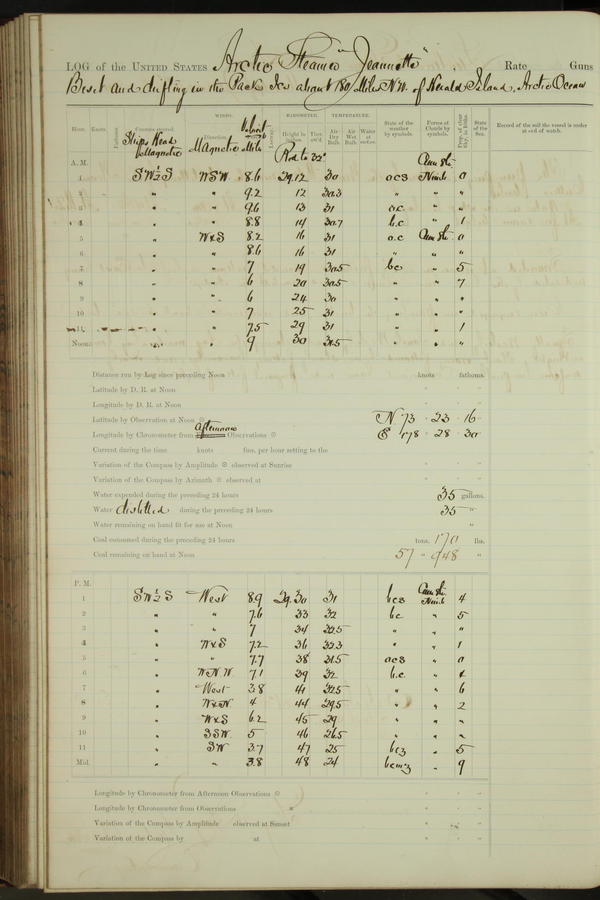 LOG of the UNITED STATES Arctic Steamer "Jeannette" Rate Guns
Beset and drifting in the Pack Ice about 180 Miles N.W. of Herald Island, Arctic Ocean
WINDS. BAROMETER. TEMPERATURE.
Hour. Knots. Fathoms. Courses steered. Ships Head Magnetic Direction Magnetic Velocity Miles Leeway. Height in inches. Ther. att'd. Air Dry Bulb. Air Wet Bulb. Water at surface. State of the weather by symbols. Forms of Clouds by symbols. Prop. of clear sky, in 10ths. State of the Sea. Record of the sail the vessel is under at end of watch.
Red to 32°
A. M. Cum Str.
1 SW½S WSW 8.6 29.12 30 ocs Nimb 0
2 " " 9.2 12 30.3 " " "
3 " " 9.6 13 31 o.c. " "
4 " " 8.8 14 30.7 b.c. " 1
5 " WxS 8.2 16 31 o.c Cum Str. 0
6 " " 8.6 16 31 " " "
7 " " 7 19 30.5 bc " 5
8 " " 6 20 30.5 " " 7
9 " " 6 24 30 " " "
10 " " 7 25 31 " " "
11 " " 7.5 29 31 " " 1
Noon " " 9 30 31.5 " " "
Distance run by Log since preceding Noon knots fathoms.
Latitude by D. R. at Noon
Longitude by D. R. at Noon
Latitude by Observation at Noon N 73 23 16
Longitude by Chronometer from Afternoon Observations E 178 28 30
Current during the time knots fms. per hour setting to the
Variation of the Compass by Amplitude observed at Sunrise
Variation of the Compass by Azimuth observed at
Water expended during the preceding 24 hours 35 gallons.
Water distilled during the preceding 24 hours 35 "
Water remaining on hand fit for use at Noon "
Coal consumed during the preceding 24 hours tons, 170 lbs.
Coal remaining on hand at Noon 57 " 948 "
P. M.
1 SW½S West 8.9 29.30 31 bcs Cum Str. Nimb 4
2 " " 7.6 33 32 bc " 5
3 " " 7 34 32.5 " " "
4 " WxS 7.2 36 32.3 " " 1
5 " " 7.7 38 31.5 ocs " 0
6 " W.N.W. 7.1 39 32 b.c. " 4
7 " West 3.8 41 32.5 " " 6
8 " WxN 4 44 29.5 " " 2
9 " WxS 6.2 45 29 " " "
10 " SSW 5 46 26.5 " " "
11 " SW 3.7 47 25 bcz " 5
Mid. " " 3.8 48 24 bcmz " 9
Longitude by Chronometer from Afternoon Observations
Longitude by Chronometer from Observations
Variation of the Compass by Amplitude observed at Sunset
Variation of the Compass by at